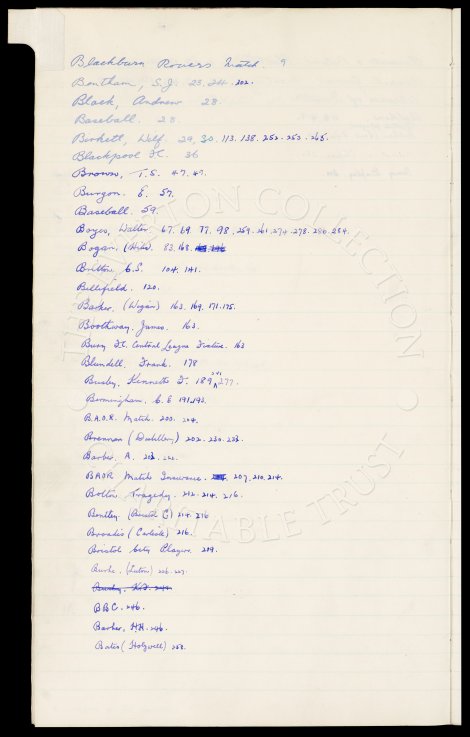 Blackburn Rovers Match. 9
Bentham, S.J. 23, 24. 202.
Black, Andrew 28.
Baseball. 28.
Birkett, Wilf. 29, 30. 113. 138. 252. 253. 265.
Blackpool F.C. 36
Brown, T.S. 47. 47.
Burgon. E. 57.
Baseball. 59.
Boyes, Walter. 67. 69. 77. 98, 259. 261. 274. 278. 280. 284.
Bogan. (Hibs). 83. 168.
Britton, C.S. 104. 141.
Bellefield. 120.
Barker, (Wigan) 163. 169. 171. 175.
Boothway. James. 163.
Bury F.C. Central League Fixture. 163
Blundell, Frank. 178
Busby, Kenneth F. 189, 277.
Birmingham, C.E 191, 193.
B.A.O.R. Match. 200. 204.
Brennan (Distillery) 202. 230. 232.
Barber, A.
BAOR Match Insurance. 207, 210. 214.
Bolton Tragedy. 212. 214. 216.
Bentley (Bristol C) 214. 216
Broadis (Carlisle) 216.
Bristol City Players. 219.
Burke. (Luton) 226. 227.
BBC. 246.
Barker, H.H. 246.
Bates 252.
THE COLLECTION
CHARITABLE TRUST